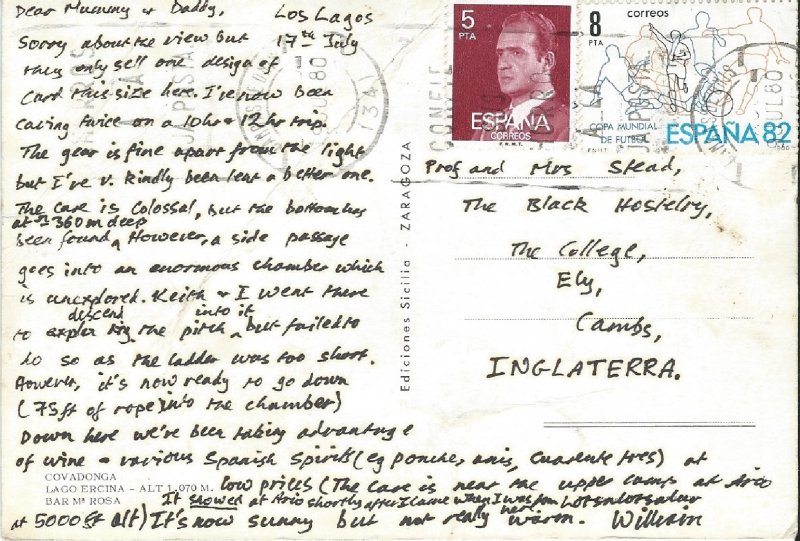 Dear Mummy & Daddy, Los Lagos
Sorry about the view but 17th July
they only sell one design of
Card this size here. I've now been
Caving twice on a 10hr & 12hr trip.
The gear is fine apart from the light
but I've v. kindly been lent a better one.
The Cave is Colossal, but the bottom has
at ~360m deep
been found. However, a side passage
goes into an enormous chamber which
is unexplored. Keith & I went there
descend into it
to the pitch, but failed to
do so as the ladder was too short.
However, it's now ready to go down
(75ft of rope) into the chamber)
Down here we've been taking advantage
of wine & various Spanish Spirits (eg ponche, anis, Cuarenta tres) at
low prices (The Cave is near the upper camp at Ario
It snowed at Ario shortly after I came when I was here
at 5000ft alt) It's now sunny but not really warm. William
COVADONGA
LAGO ERCINA - ALT 1,070 M.
BAR Mª ROSA
Ediciones Sicilia - ZARAGOZA
5
PTA
ESPAÑA
CORREOS
F.N.M.T.
8
PTA
correos
COPA MUNDIAL
DE FUTBOL
ESPAÑA 82
F.N.M.T.
1980
JUL 80
Prof and Mrs Stead,
The Black Hostelry,
The College,
Ely,
Cambs,
INGLATERRA.